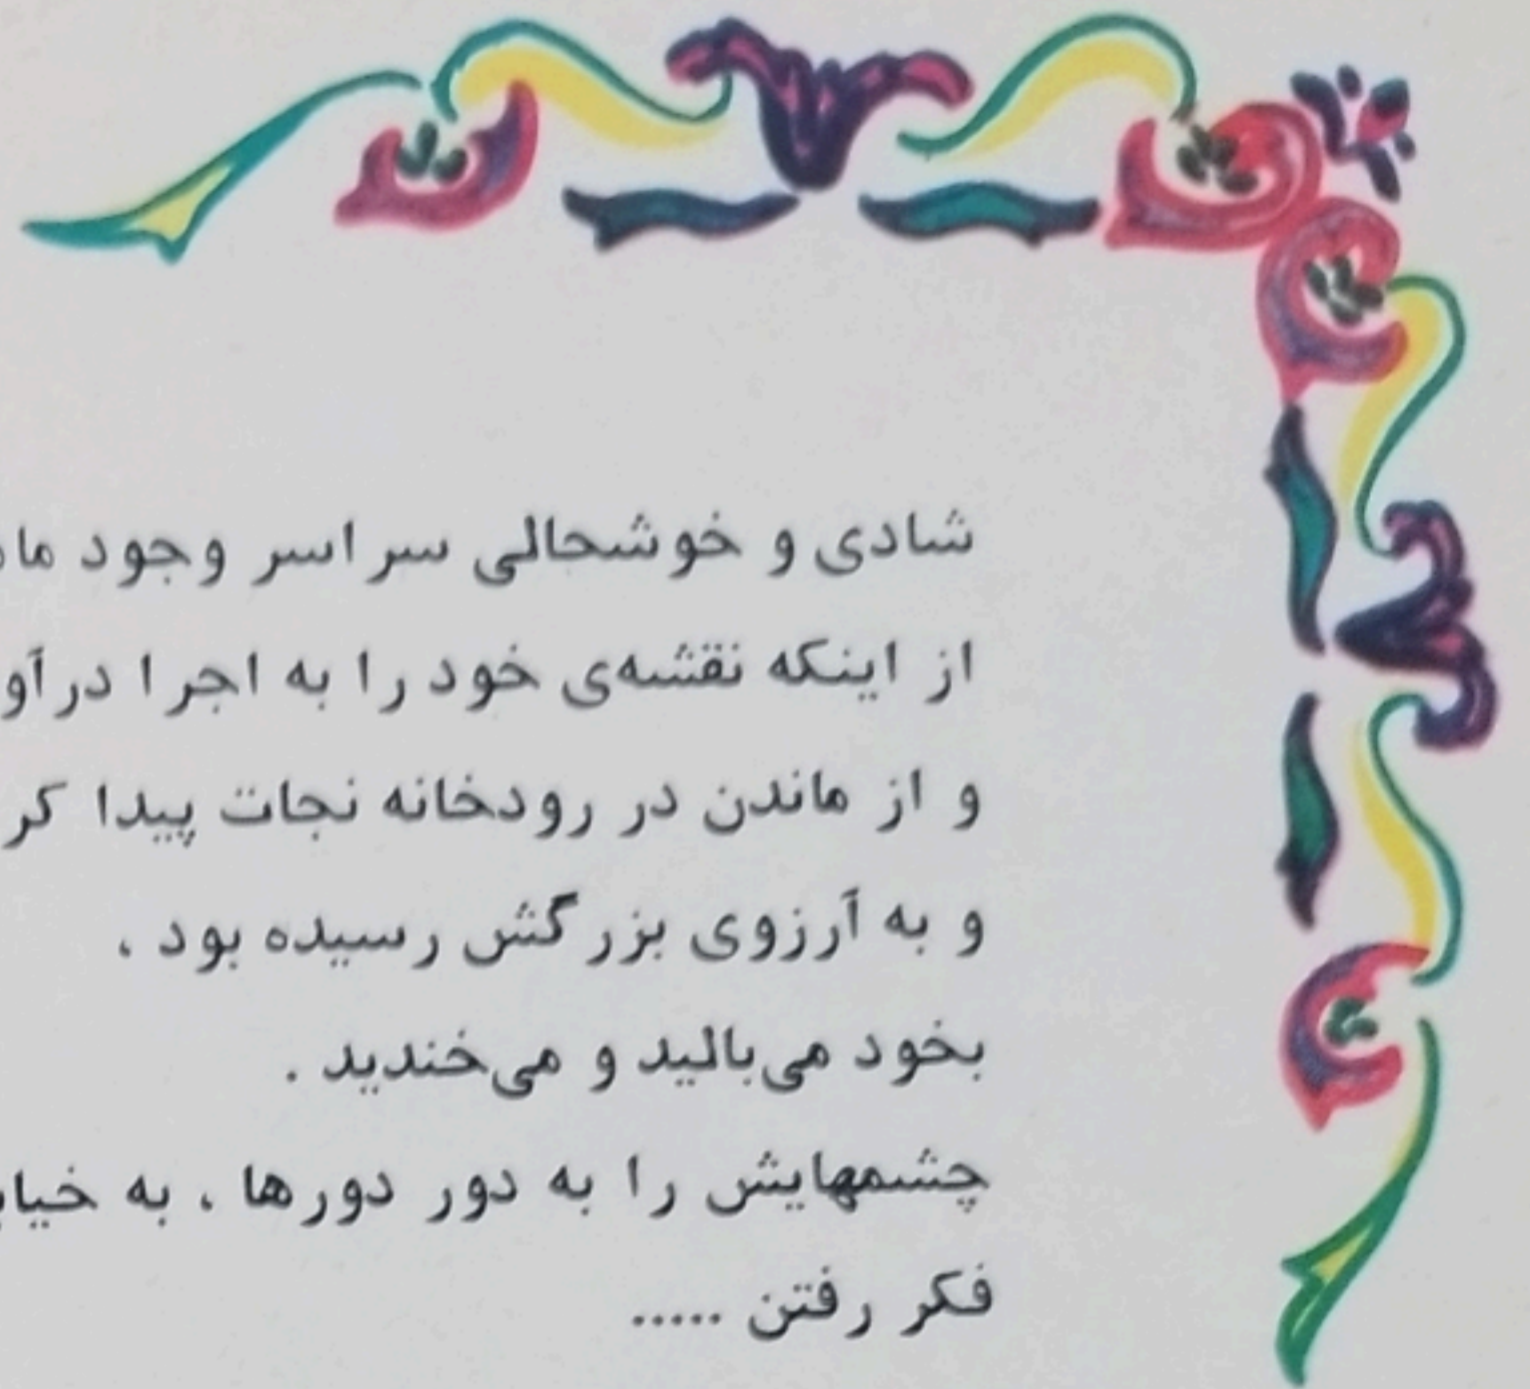 شادی و خوشحالی سراسر وجود
از اینکه نقشه‌ی خود را به اجرا
و از ماندن در رودخانه نجات پیدا
و به آرزوی بزرگش رسیده بود ،
بخود می‌بالید و می‌خندید .
چشمهایش را به دور دورها ، به
فکر رفتن .....